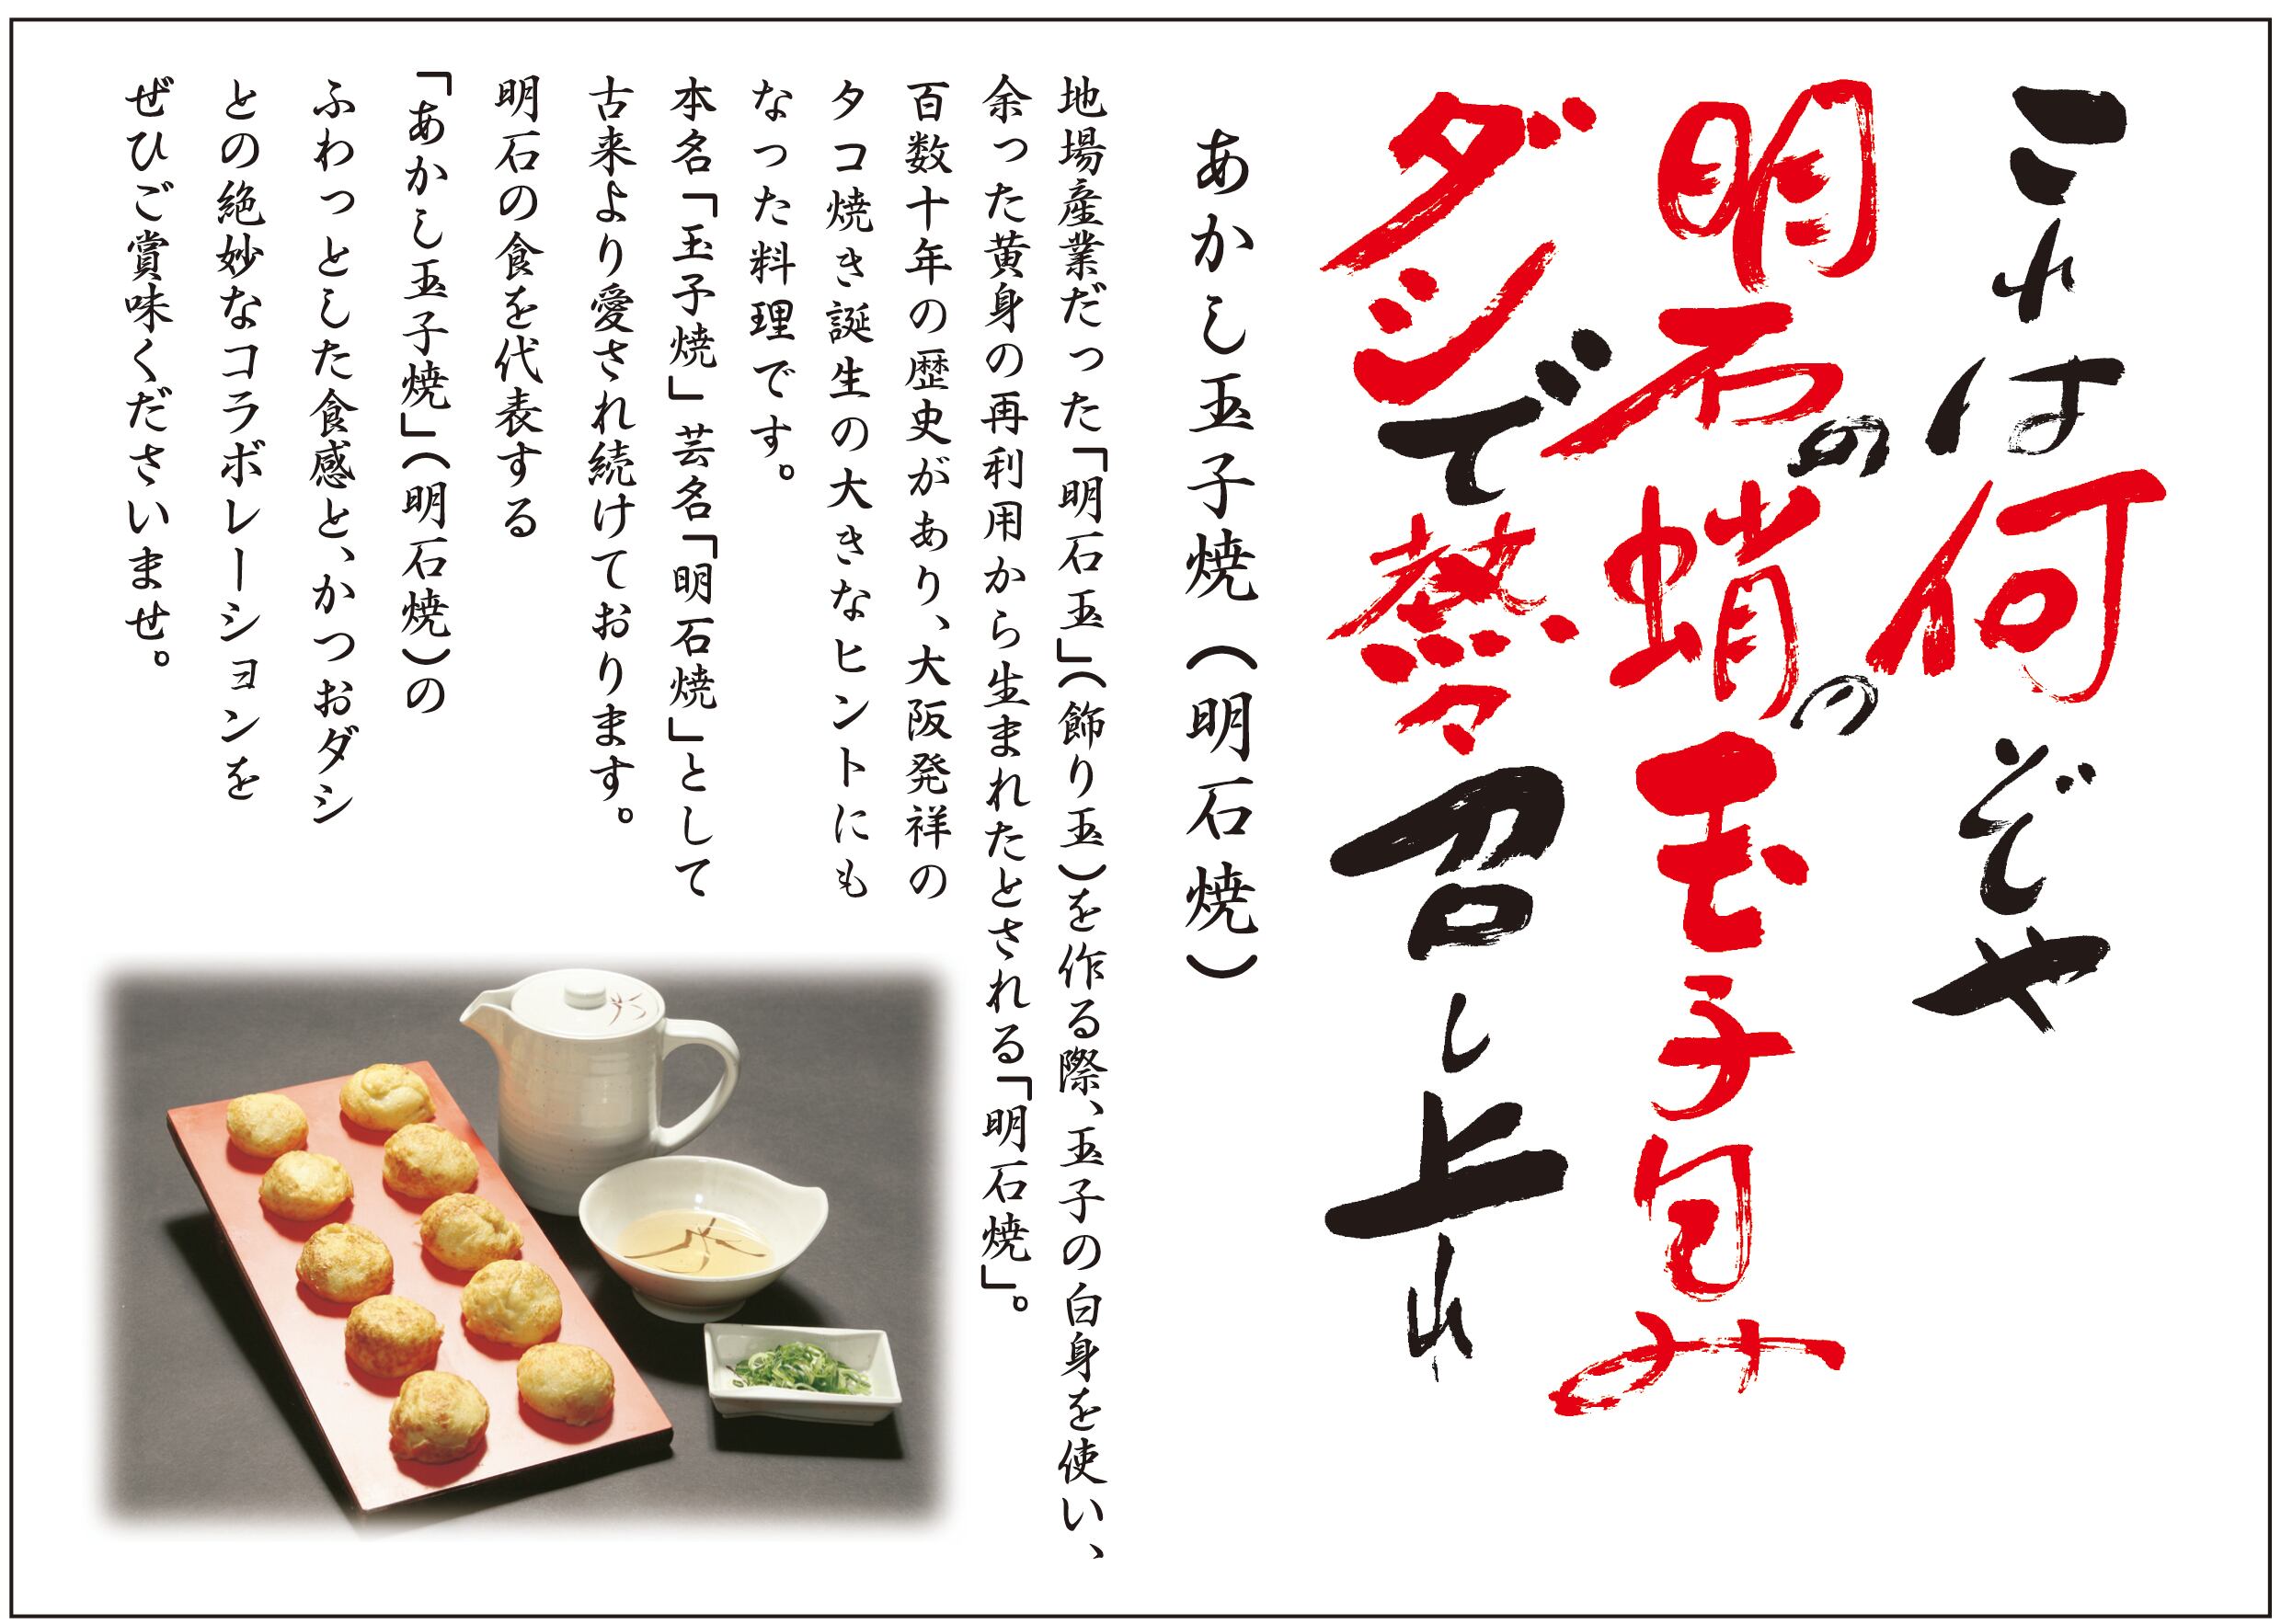 これは何ぞや
明石の蛸の玉子包み
ダシで熱々召し上れ
あかし玉子焼（明石焼）
地場産業だった「明石玉」（飾り玉）を作る際、玉子の白身を使い、
余った黄身の再利用から生まれたとされる「明石焼」。
百数十年の歴史があり、大阪発祥の
タコ焼き誕生の大きなヒントにも
なった料理です。
本名「玉子焼」芸名「明石焼」として
古来より愛され続けております。
明石の食を代表する
「あかし玉子焼」（明石焼）の
ふわっとした食感と、かつおダシ
との絶妙なコラボレーションを
ぜひご賞味くださいませ。